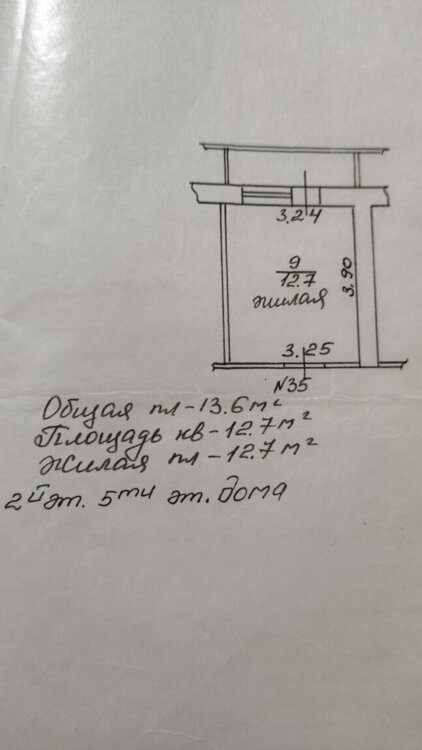 3.24
9
12.7
жилая
3.90
3.25
N35
Общая пл-13.6м²
Площадь кв-12.7м²
Жилая пл-12.7м²
2й эт. 5ти эт. дома